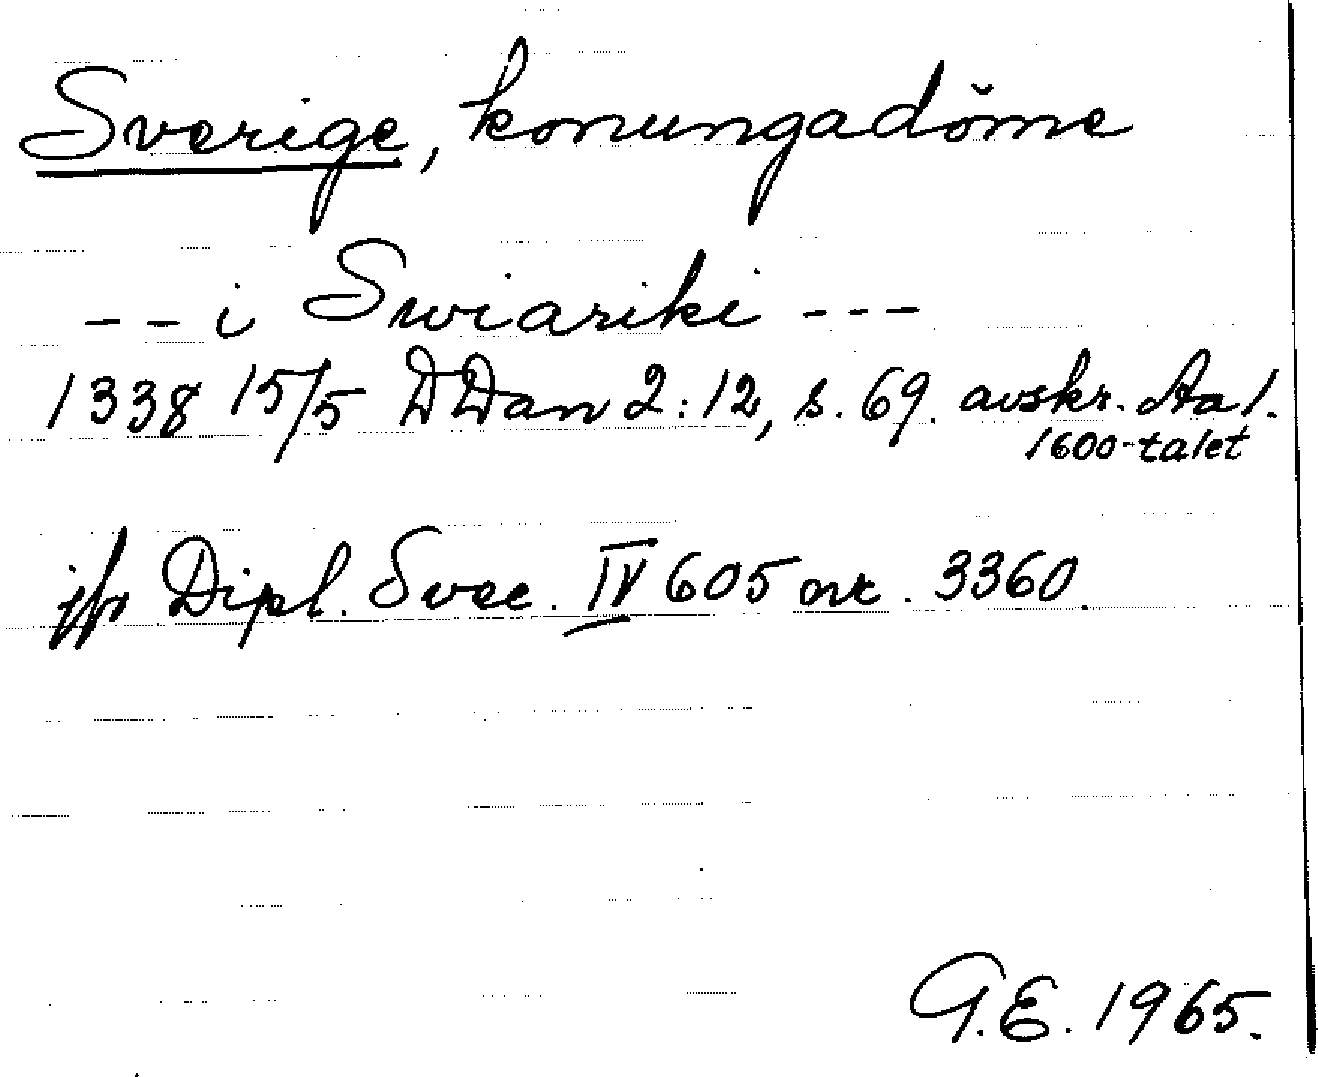 Sverige, konungadöme
-- i Swiariki ---
1338 15/5 DDan 2:12, s. 69. avskr. Aa 1.
1600-talet
jfr Dipl. Svec. IV 605 nr. 3360.
G.E. 1965.